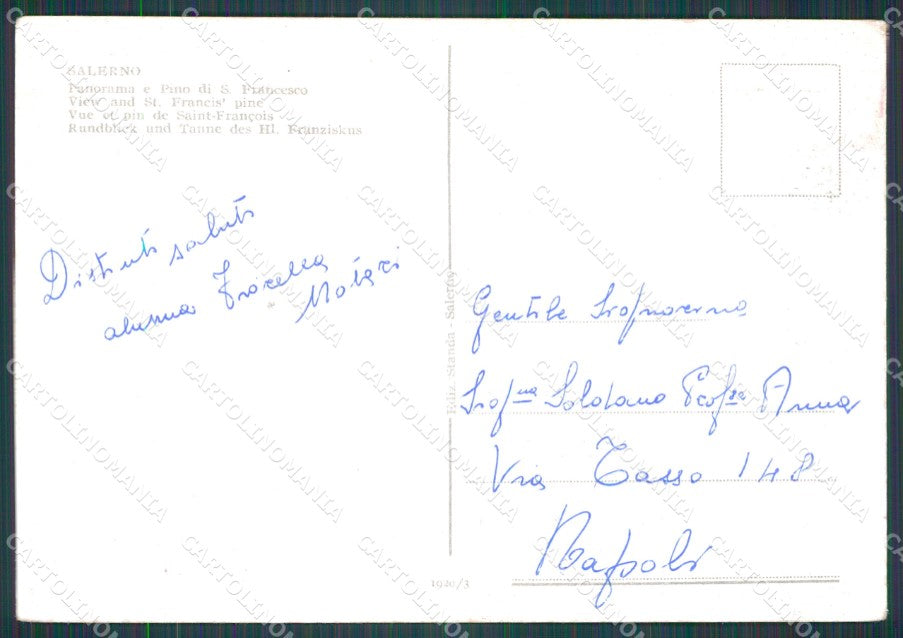 SALERNO
Panorama e Pino di S. Francesco
View and St. Francis' pine
Vue et pin de Saint-François
Rundblick und Tanne des Hl. Franziskus
Distinti saluti
alunna Fiorella
Notari
Gentile
Soldano Prof.ssa Anna
Via Tasso 148
Napoli
Ediz. Standa - Salerno
1920/3
CARTOLINOMANIA